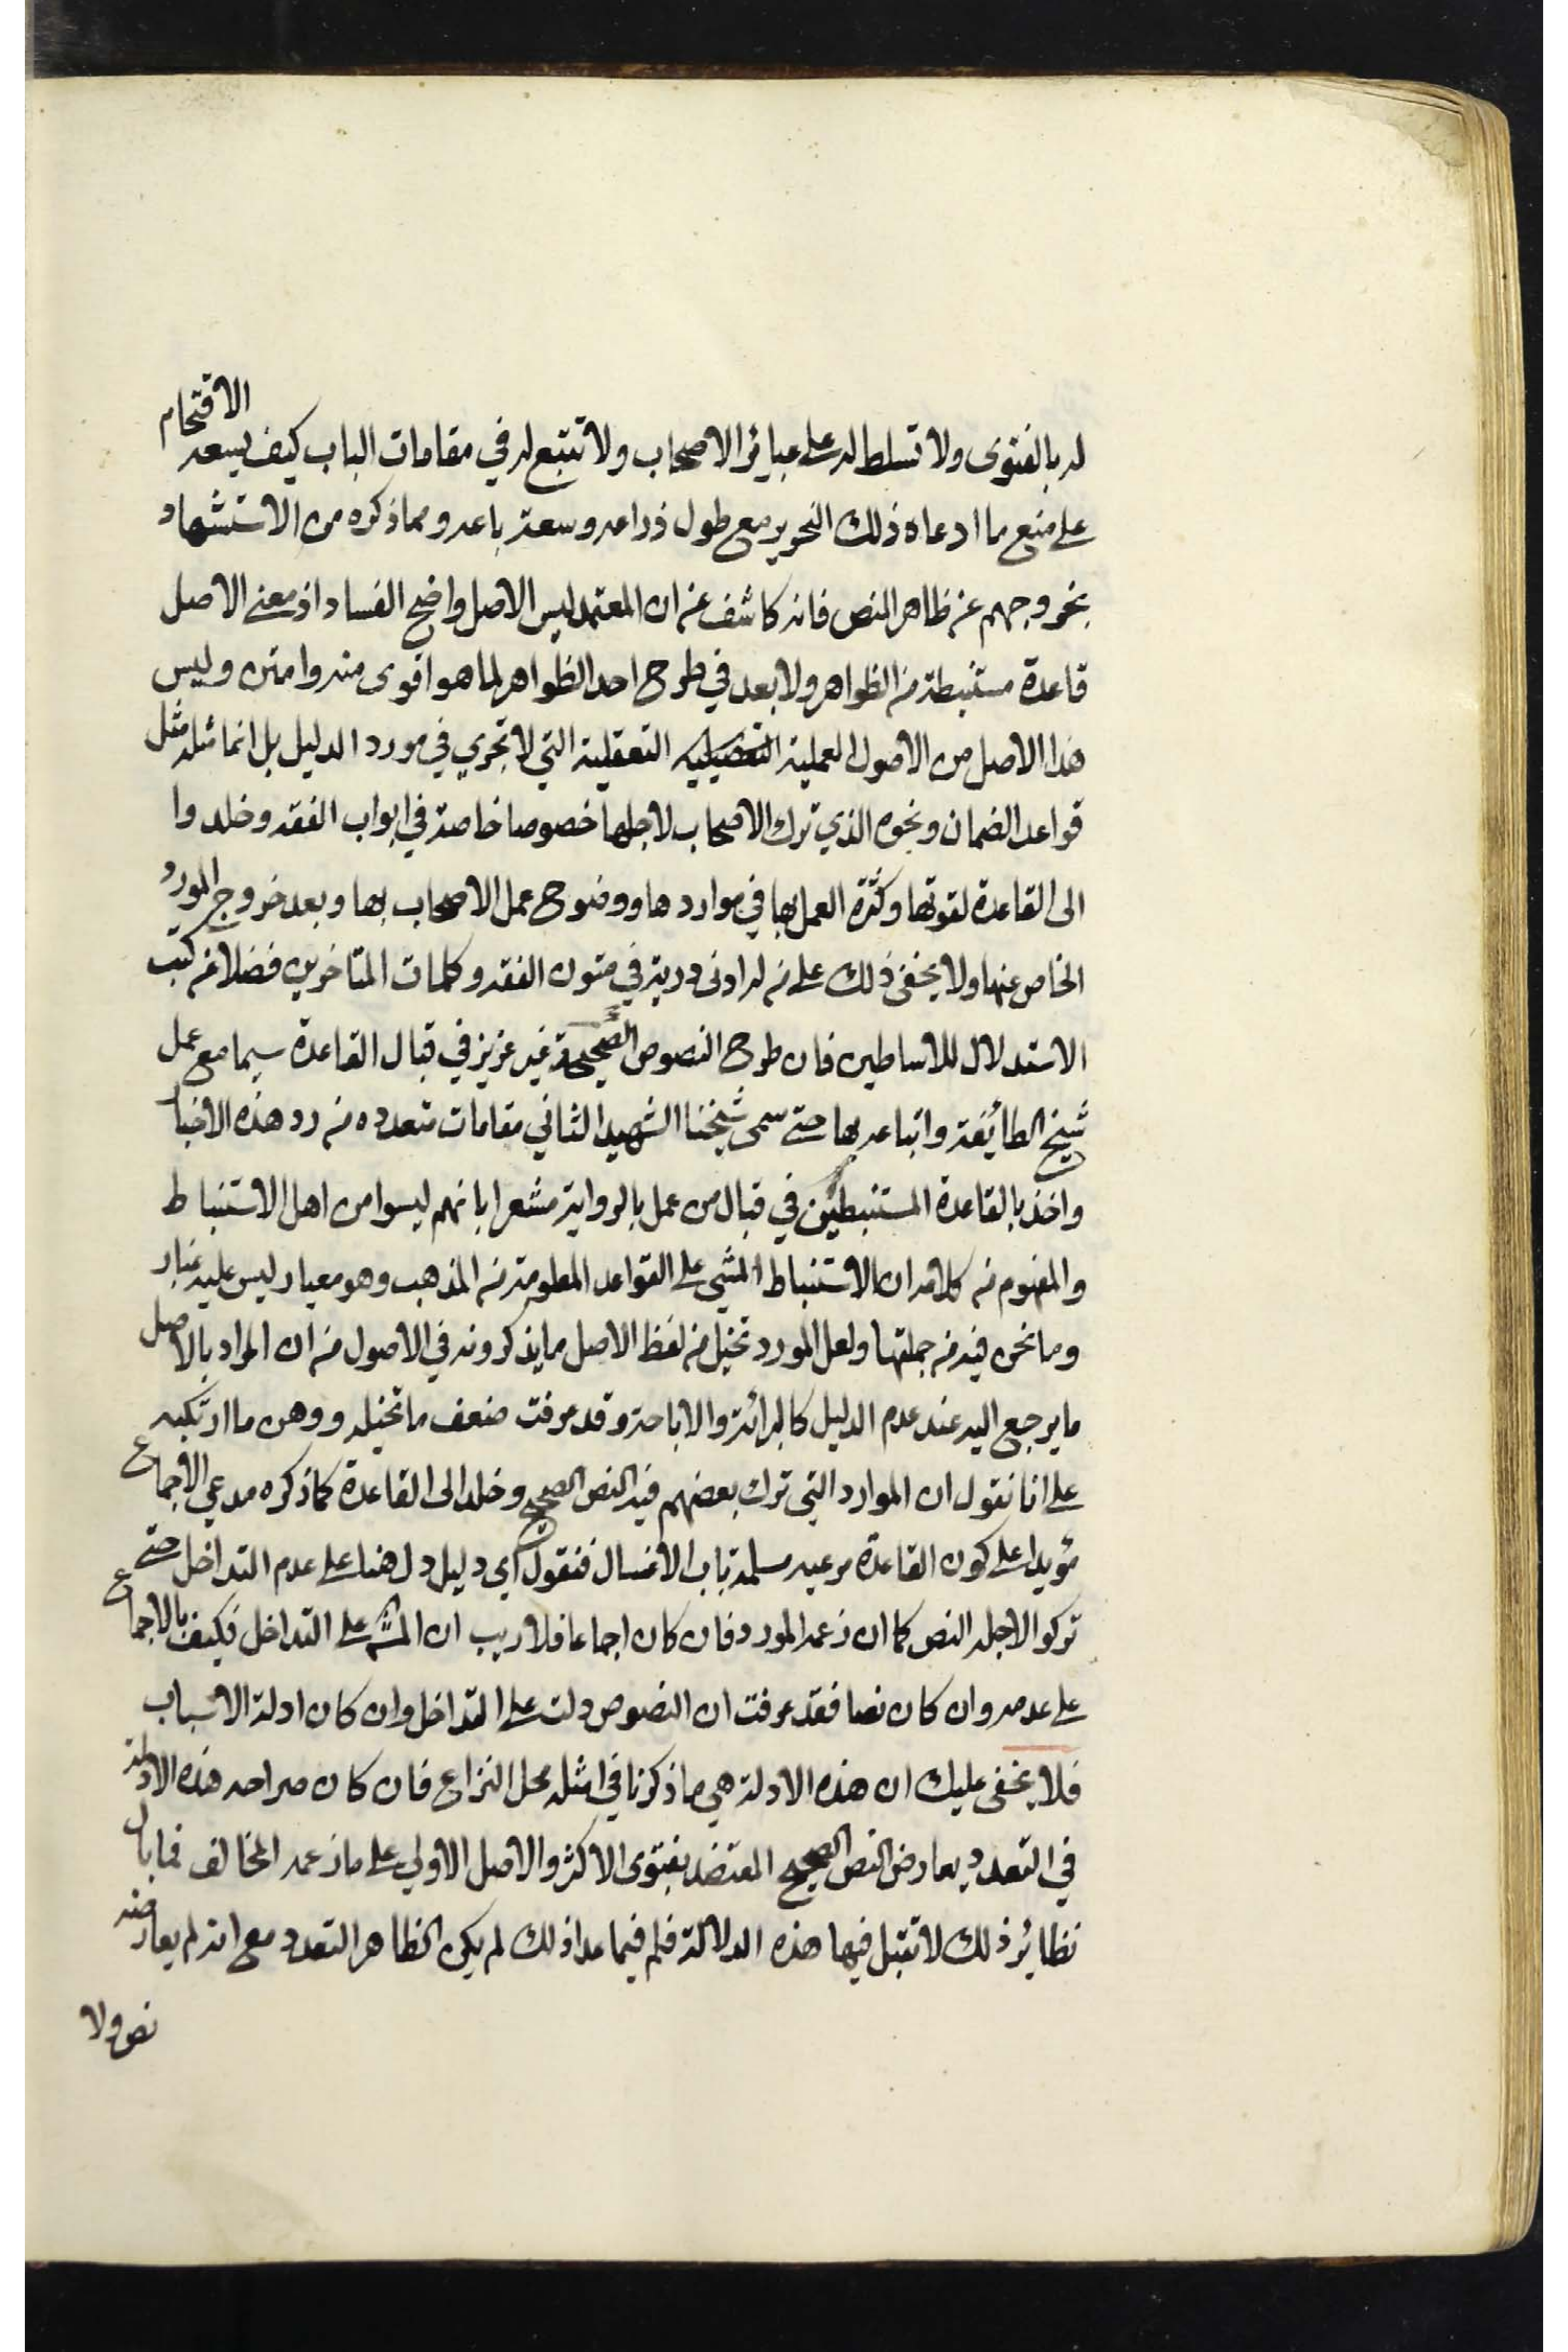 له بالفتوى ولا تسلط له على عبائر الاصحاب ولا تتبع له في مقامات الباب كيف يسعه الاقتحام
على منع ما ادعاه ذلك النحرير مع طول ذراعه وسعة باعه ومما ذكره من الاستشهاد
بخروجهم عن ظاهر النص فانه كاشف عن ان المعتمد ليس الاصل واضح الفساد اذ معنى الاصل
قاعدة مستنبطة من الظواهر ولا بعد في طرح احد الظواهر لما هو اقوى منه وامتن وليس
هذا الاصل من الاصول العملية التعقلية التي لا تجري في مورد الدليل بل انما مثله مثل
قواعد الضمان ونحوه الذي ترك الاصحاب لاجلها خصوصا خاصة في ابواب الفقه وخلدوا
الى القاعدة لقوتها وكثرة العمل بها في مواردها ووضوح عمل الاصحاب بها وبعد خروج المورد
الخاص عنها ولا يخفى ذلك على من له ادنى دربة في متون الفقه وكلمات المتاخرين فضلا عن كتب
الاستدلال للاساطين فان طرح النصوص الصحيحة غير عزيز في قبال القاعدة سيما مع عمل
شيخ الطائفة واتباعه بها حتى سمى شيخنا الشهيد الثاني مقامات متعدده من رد هذه الاخبار
واخذ بالقاعدة المستنبطين في قبال من عمل بالرواية مشعرا بانهم ليسوا من اهل الاستنباط
والمفهوم من كلامه ان الاستنباط المشي على القواعد المعلومة من المذهب وهو معيار ليس عليه غبار
وما نحن فيه من جملتها ولعل المورد تخيل من لفظ الاصل ما يذكرونه في الاصول من ان المراد بالاصل
ما يرجع اليه عند عدم الدليل كالبرائة والاباحة وقد عرفت ضعف ما تخيله ووهن ما ارتكبه
على انا نقول ان الموارد التي ترك بعضهم فيه النص الصحيح وخلد الى القاعدة كما ذكره مدعي الاجماع
مؤيدا على كون القاعدة مرعيه مسلمة باب الاغسال فنقول اي دليل دل هنا على عدم التداخل حتى
تركوا لاجله النص كما ان زعمه المورد فان كان اجماعا فلا ريب ان المش على التداخل فكيف بالاجماع
على عدمه وان كان نصا فقد عرفت ان النصوص دلت على التداخل وان كان ادلة الاسباب
فلا يخفى عليك ان هذه الادلة هي ما ذكرنا في امثله محل النزاع فان كان صراحه هذه الادلة
في التعدد يعارض النص الصحيح المعتضد بفتوى الاكثر والاصل الاولي على ما زعمه المخالف فما بال
نظائر ذلك لا تقبل فيها هذه الدلالة فلم فيما عدا ذلك لم يكن الظاهر التعدد مع انه لم يعارضه
نص ولا